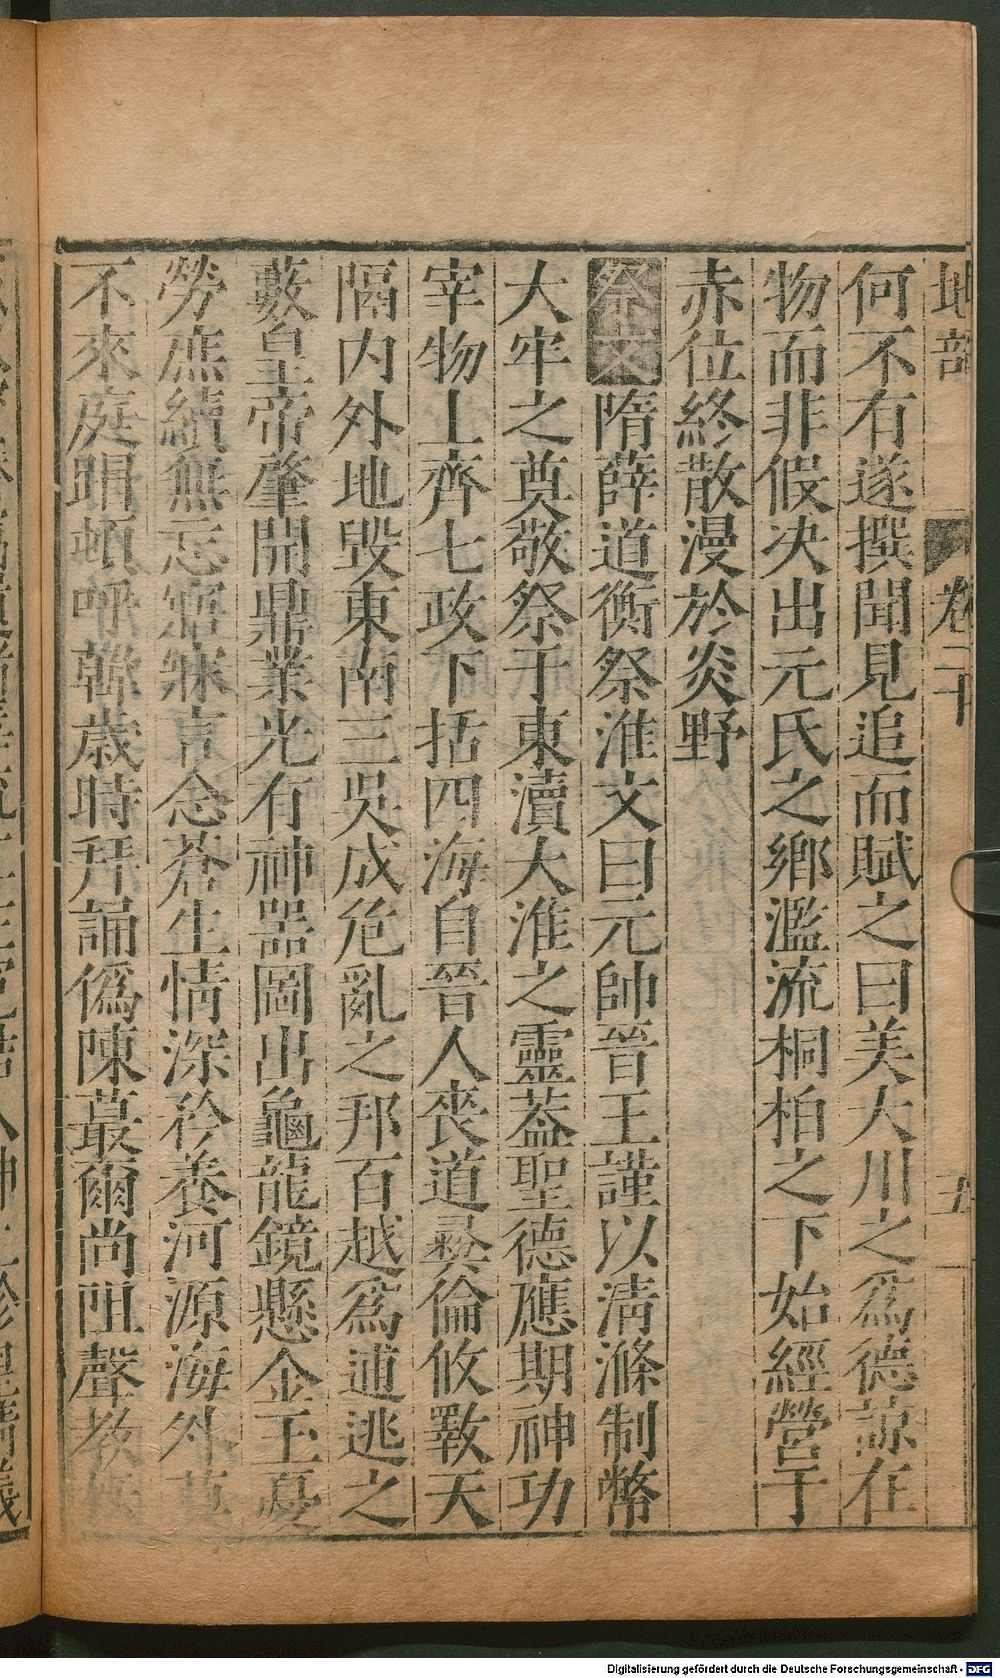 地部 卷二十 五
何不有遂撰聞見追而賦之曰美大川之爲德諒在
物而非假決出元氏之鄉濫流桐柏之下始經營于
赤位終散漫於炎野
祭文隋薛道衡祭淮文曰元帥晉王謹以清滌制幣
大牢之奠敬祭于東瀆大淮之靈蓋聖德應期神功
宰物上齊七政下括四海自晉人喪道彝倫攸斁天
隔内外地毀東南三吳成危亂之邦百越爲逋逃之
藪皇帝肇開鼎業光有神器圖出龜龍鏡懸金玉憂
勞庶績無忘寤寐言念蒼生情深矜養河源海外莫
不來庭 頓呼韓歲時拜誦僞陳蕞爾尚阻聲教
Digitalisierung gefördert durch die Deutsche Forschungsgemeinschaft - DFG